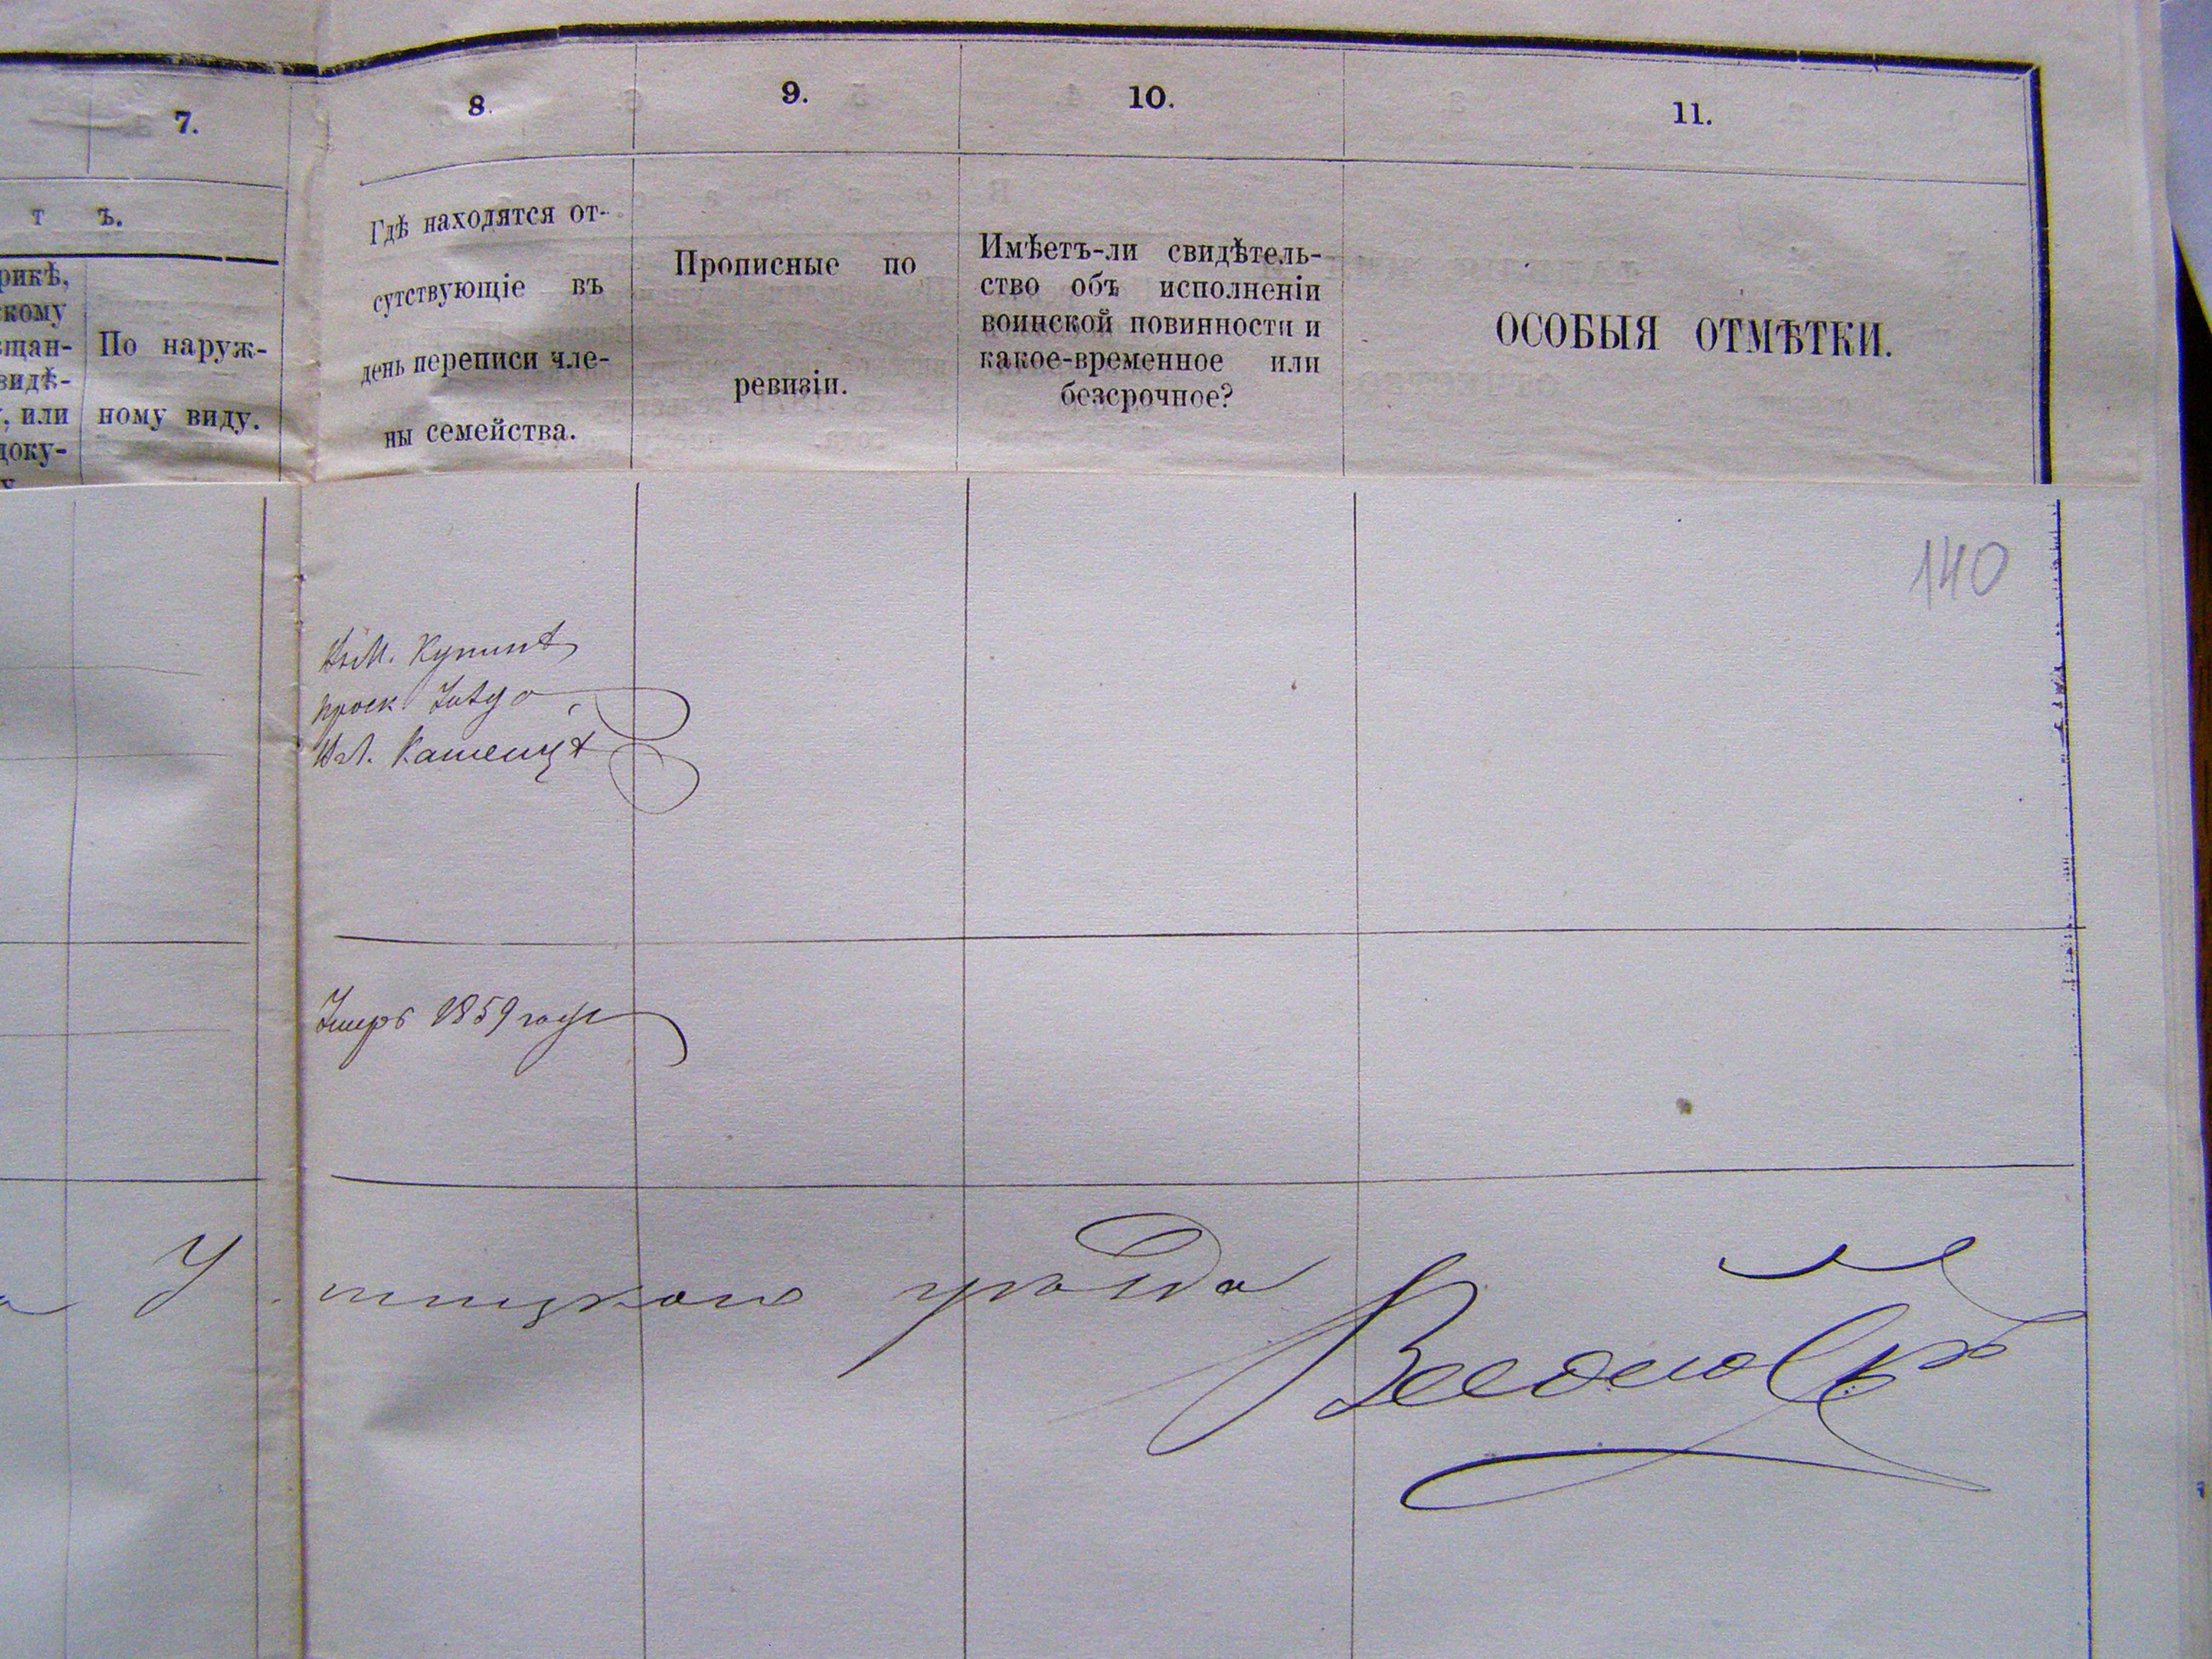 7.
8.
9.
10.
11.
т ъ.
рикѣ,
скому
ѣщан-
видѣ-
, или
доку-
По наруж-
ному виду.
Гдѣ находятся от-
сутствующіе въ
день переписи чле-
ны семейства.
Прописные по
ревизіи.
Имѣетъ-ли свидѣтель-
ство объ исполненіи
воинской повинности и
какое-временное или
безсрочное?
ОСОБЫЯ ОТМѢТКИ.
140
Въ М. Купинѣ
проск.
Въ М.
Умеръ 1859 года
Ушицкого уѣзда